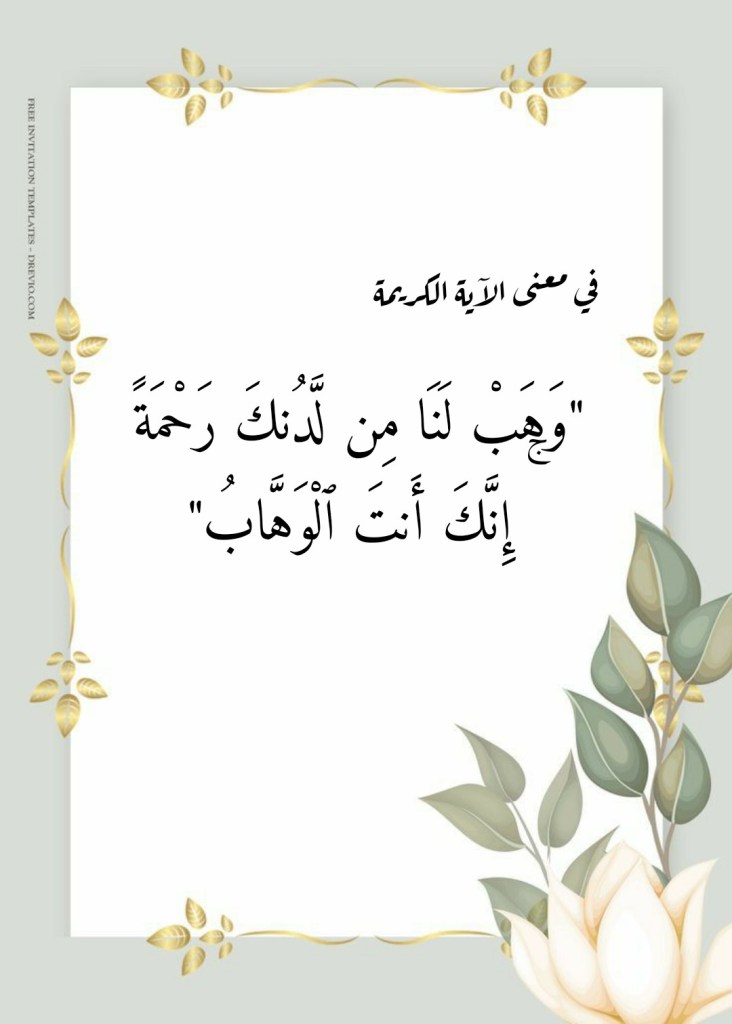 FREE INVITATION TEMPLATES - DREVIO.COM
في معنى الآية الكريمة
"وَهَبْ لَنَا مِن لَّدُنكَ رَحْمَةً ۚ
إِنَّكَ أَنتَ ٱلْوَهَّابُ"